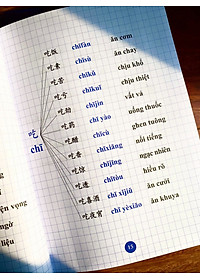 吃饭 chīfàn ăn cơm
吃素 chīsù ăn chay
吃苦 chīkǔ chịu khổ
吃亏 chīkuī chịu thiệt
吃劲 chījìn vất vả
吃药 chī yào uống thuốc
吃 chī
吃醋 chīcù ghen tuông
吃香 chīxiāng nổi tiếng
吃惊 chījīng ngạc nhiên
吃透 chītòu hiểu rõ
吃喜酒 chī xǐjiǔ ăn cưới
吃夜宵 chī yèxiāo ăn khuya
vọng
ngờ
liệu
13